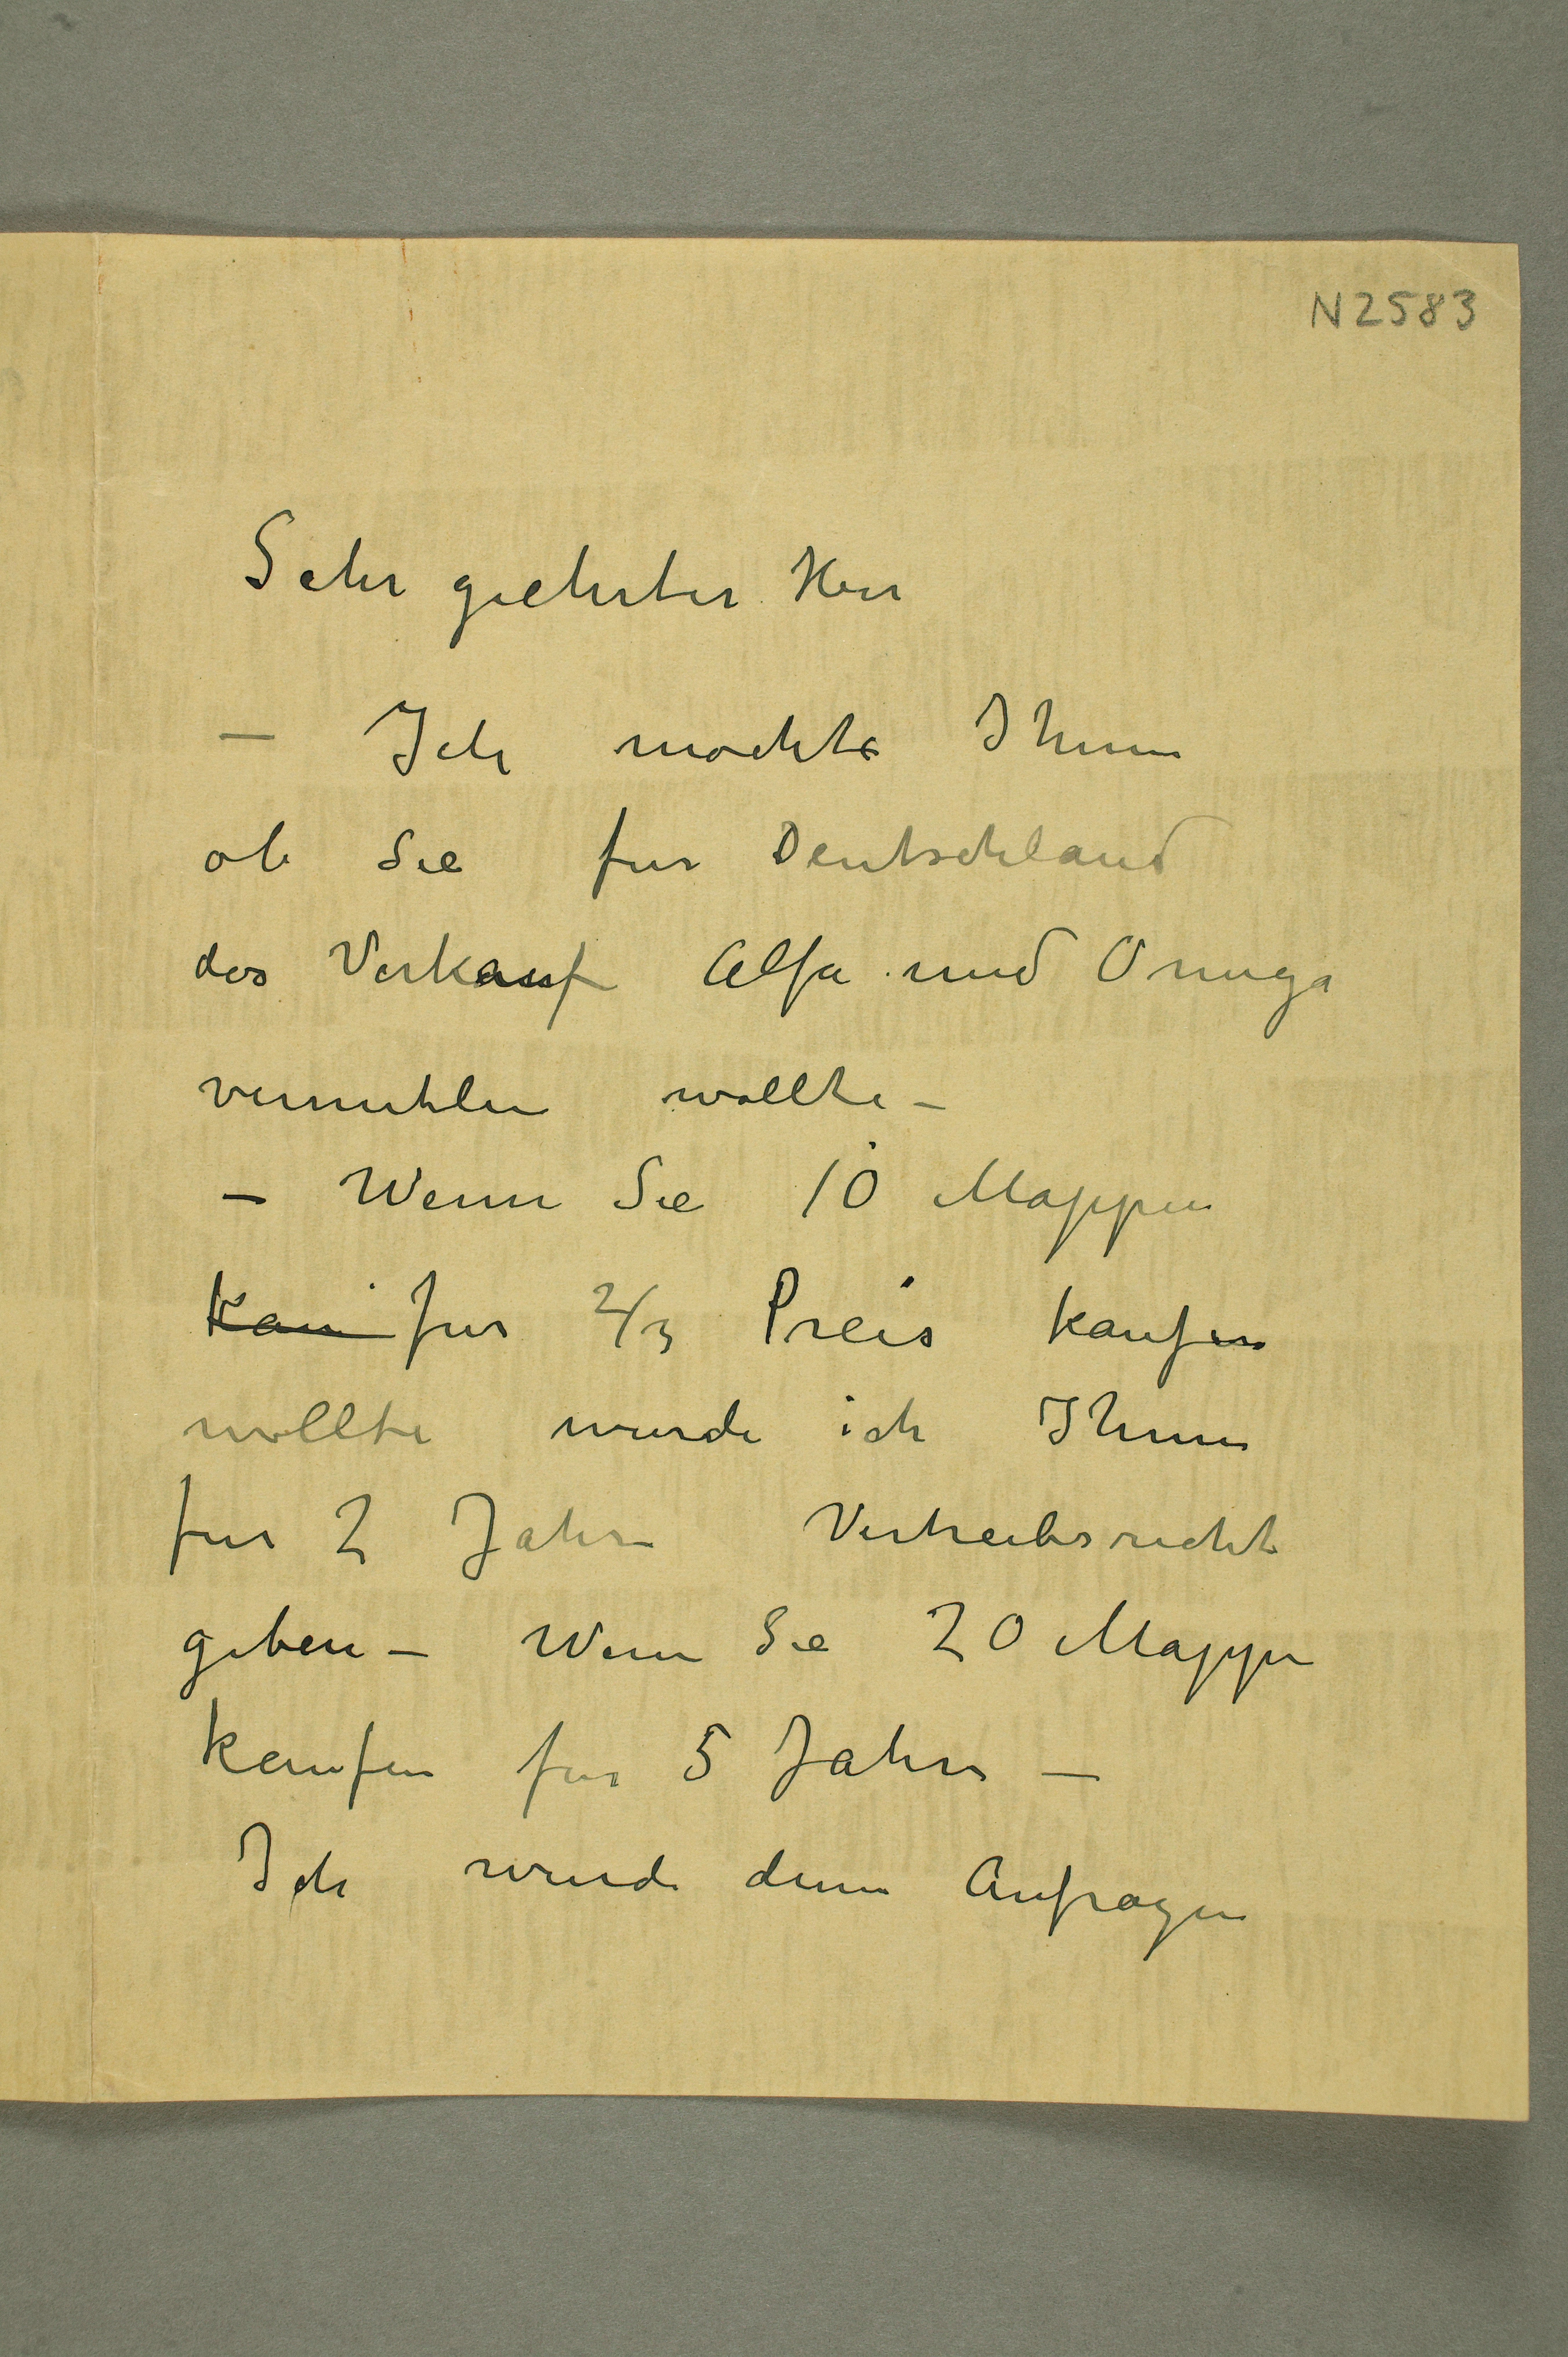 N2583
Sehr geehrter Herr
— Ich mochte Ihnen
ob Sie fur Deutschland
des Verkauf Alfa und Omega
vermitteln wollte —
— Wenn Sie 10 Mappen
fur 2/3 Preis kaufen
wollte wurde ich Ihnen
fur 2 Jahre Vertreibsrecht
geben — Wenn Sie 20 Mappen
kaufen fur 5 Jahre —
Ich wurde denn Anfragen